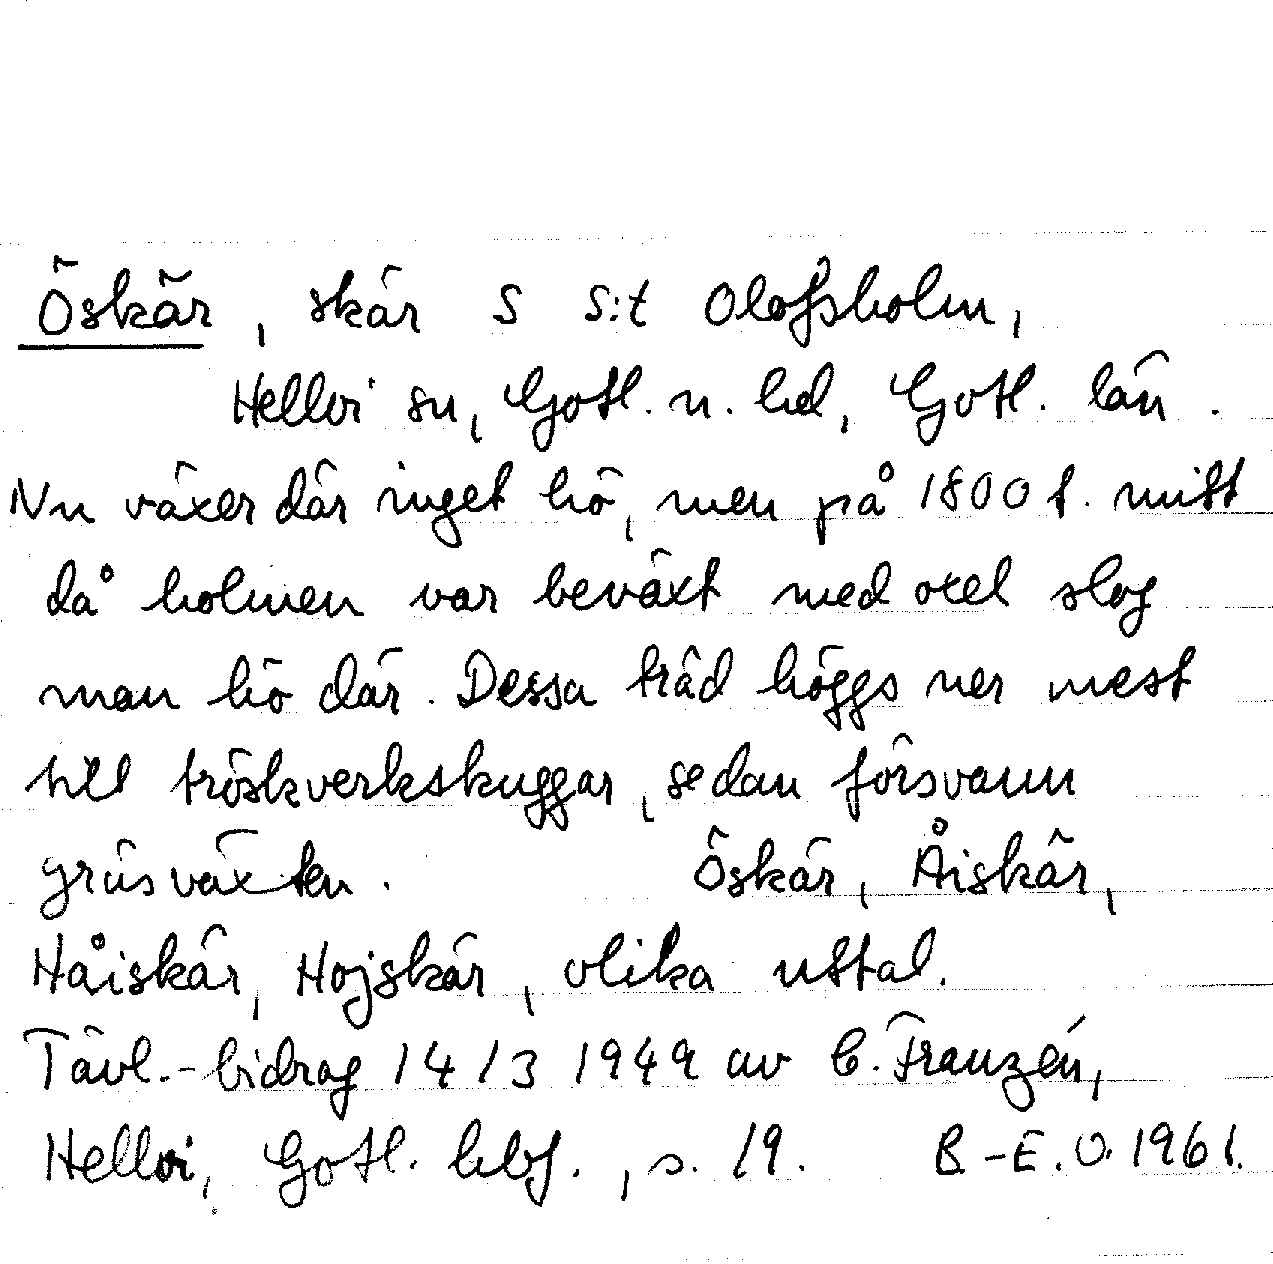 Öskär, skär S S:t Olofsholm,
Hellvi sn, Gotl. n. hd, Gotl. län.
Nu växer där inget hö, men på 1800 t. mitt
då holmen var beväxt med oxel slog
man hö där. Dessa träd höggs ner mest
till tröskverkskuggar, sedan försvann
gräsväxten. Öskär, Åiskär,
Håiskär, Hojskär, olika uttal.
Tävl.-bidrag 14/3 1949 av C. Franzén,
Hellvi, Gotl. hbf., s. 19. B-E.O. 1961.